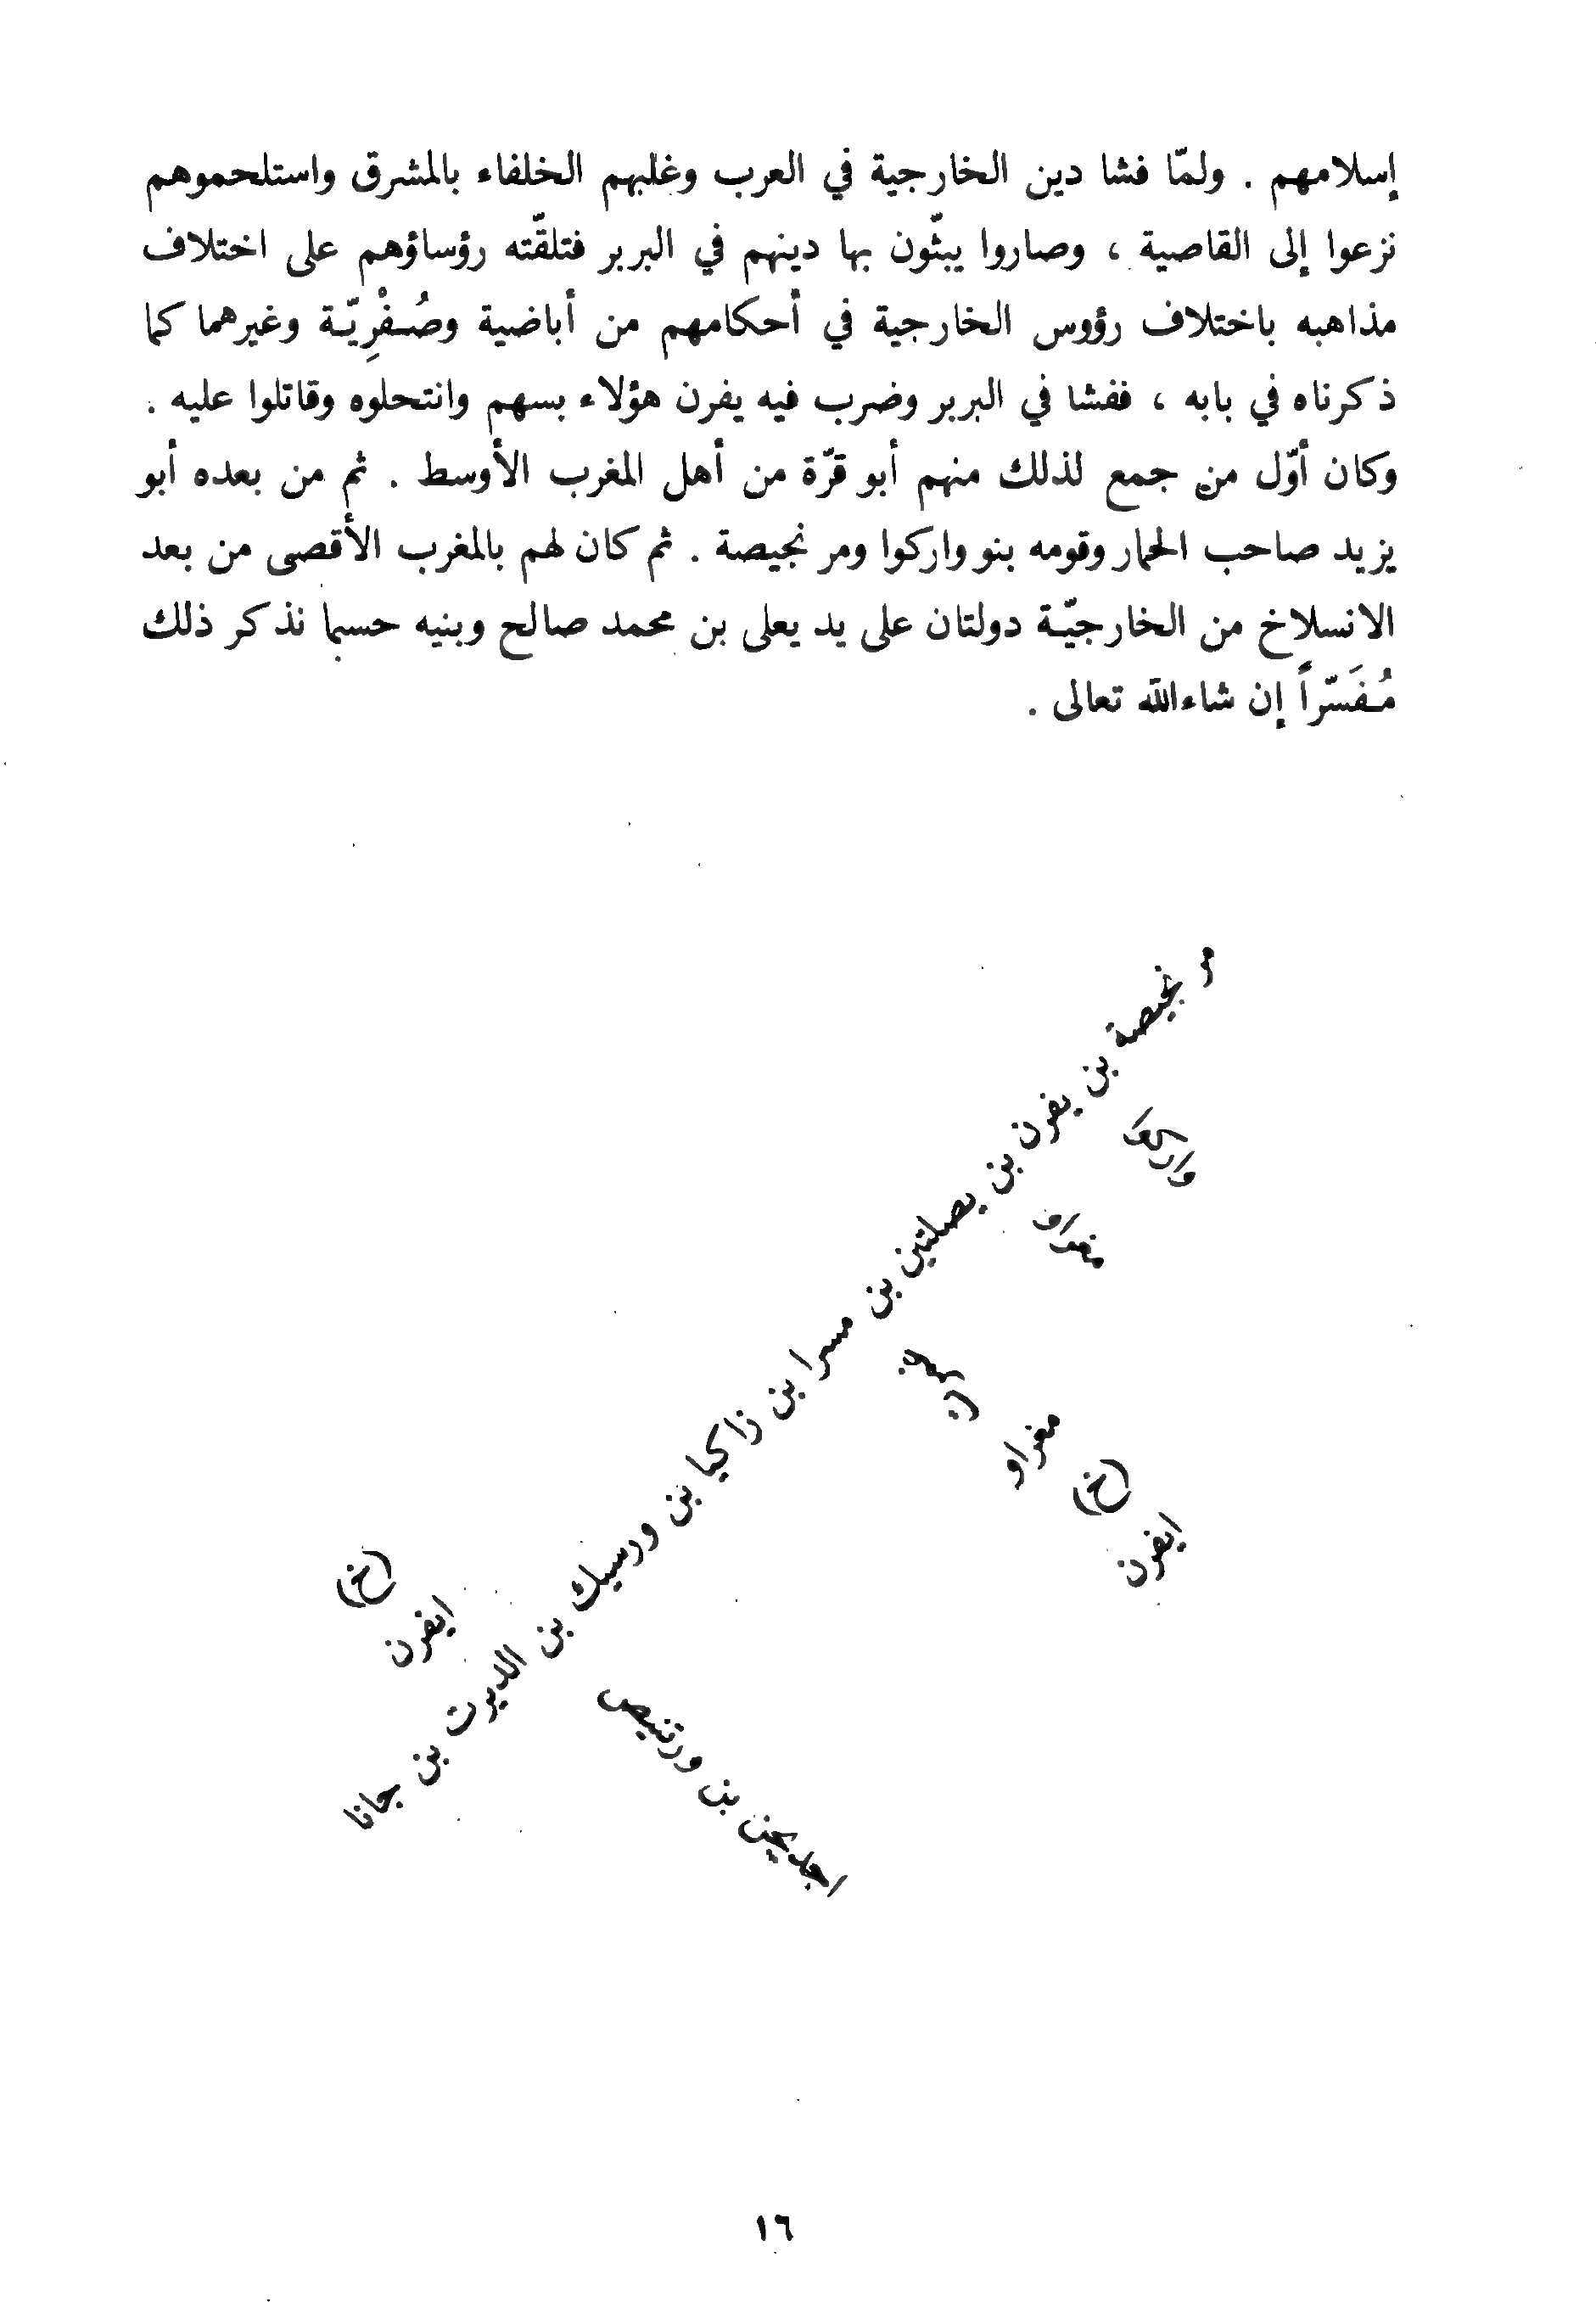 إسلامهم . ولمّا فشا دين الخارجية في العرب وغلبهم الخلفاء بالمشرق واستلحموهم
نزعوا إلى القاصية ، وصاروا يبثّون بها دينهم في البربر فتلقّته رؤساؤهم على اختلاف
مذاهبه باختلاف رؤوس الخارجية في أحكامهم من أباضية وصُفْرِيّة وغيرهما كما
ذكرناه في بابه ، ففشا في البربر وضرب فيه يفرن هؤلاء بسهم وانتحلوه وقاتلوا عليه .
وكان أوّل من جمع لذلك منهم أبو قرّة من أهل المغرب الأوسط . ثم من بعده أبو
يزيد صاحب الحمار وقومه بنو واركوا ومر نجيصة . ثم كان لهم بالمغرب الأقصى من بعد
الانسلاخ من الخارجيّة دولتان على يد يعلى بن محمد صالح وبنيه حسبما نذكر ذلك
مُفَسّراً إن شاءالله تعالى .
مر نجيصة بن يفرن بن يصلتين بن مسرا بن زاكيا بن ورسيك بن الديرت بن جانا
واركو
مغراو
مغراو
(خ)
ايفرن
(خ)
ايفرن
بن ورتنيص
١٦